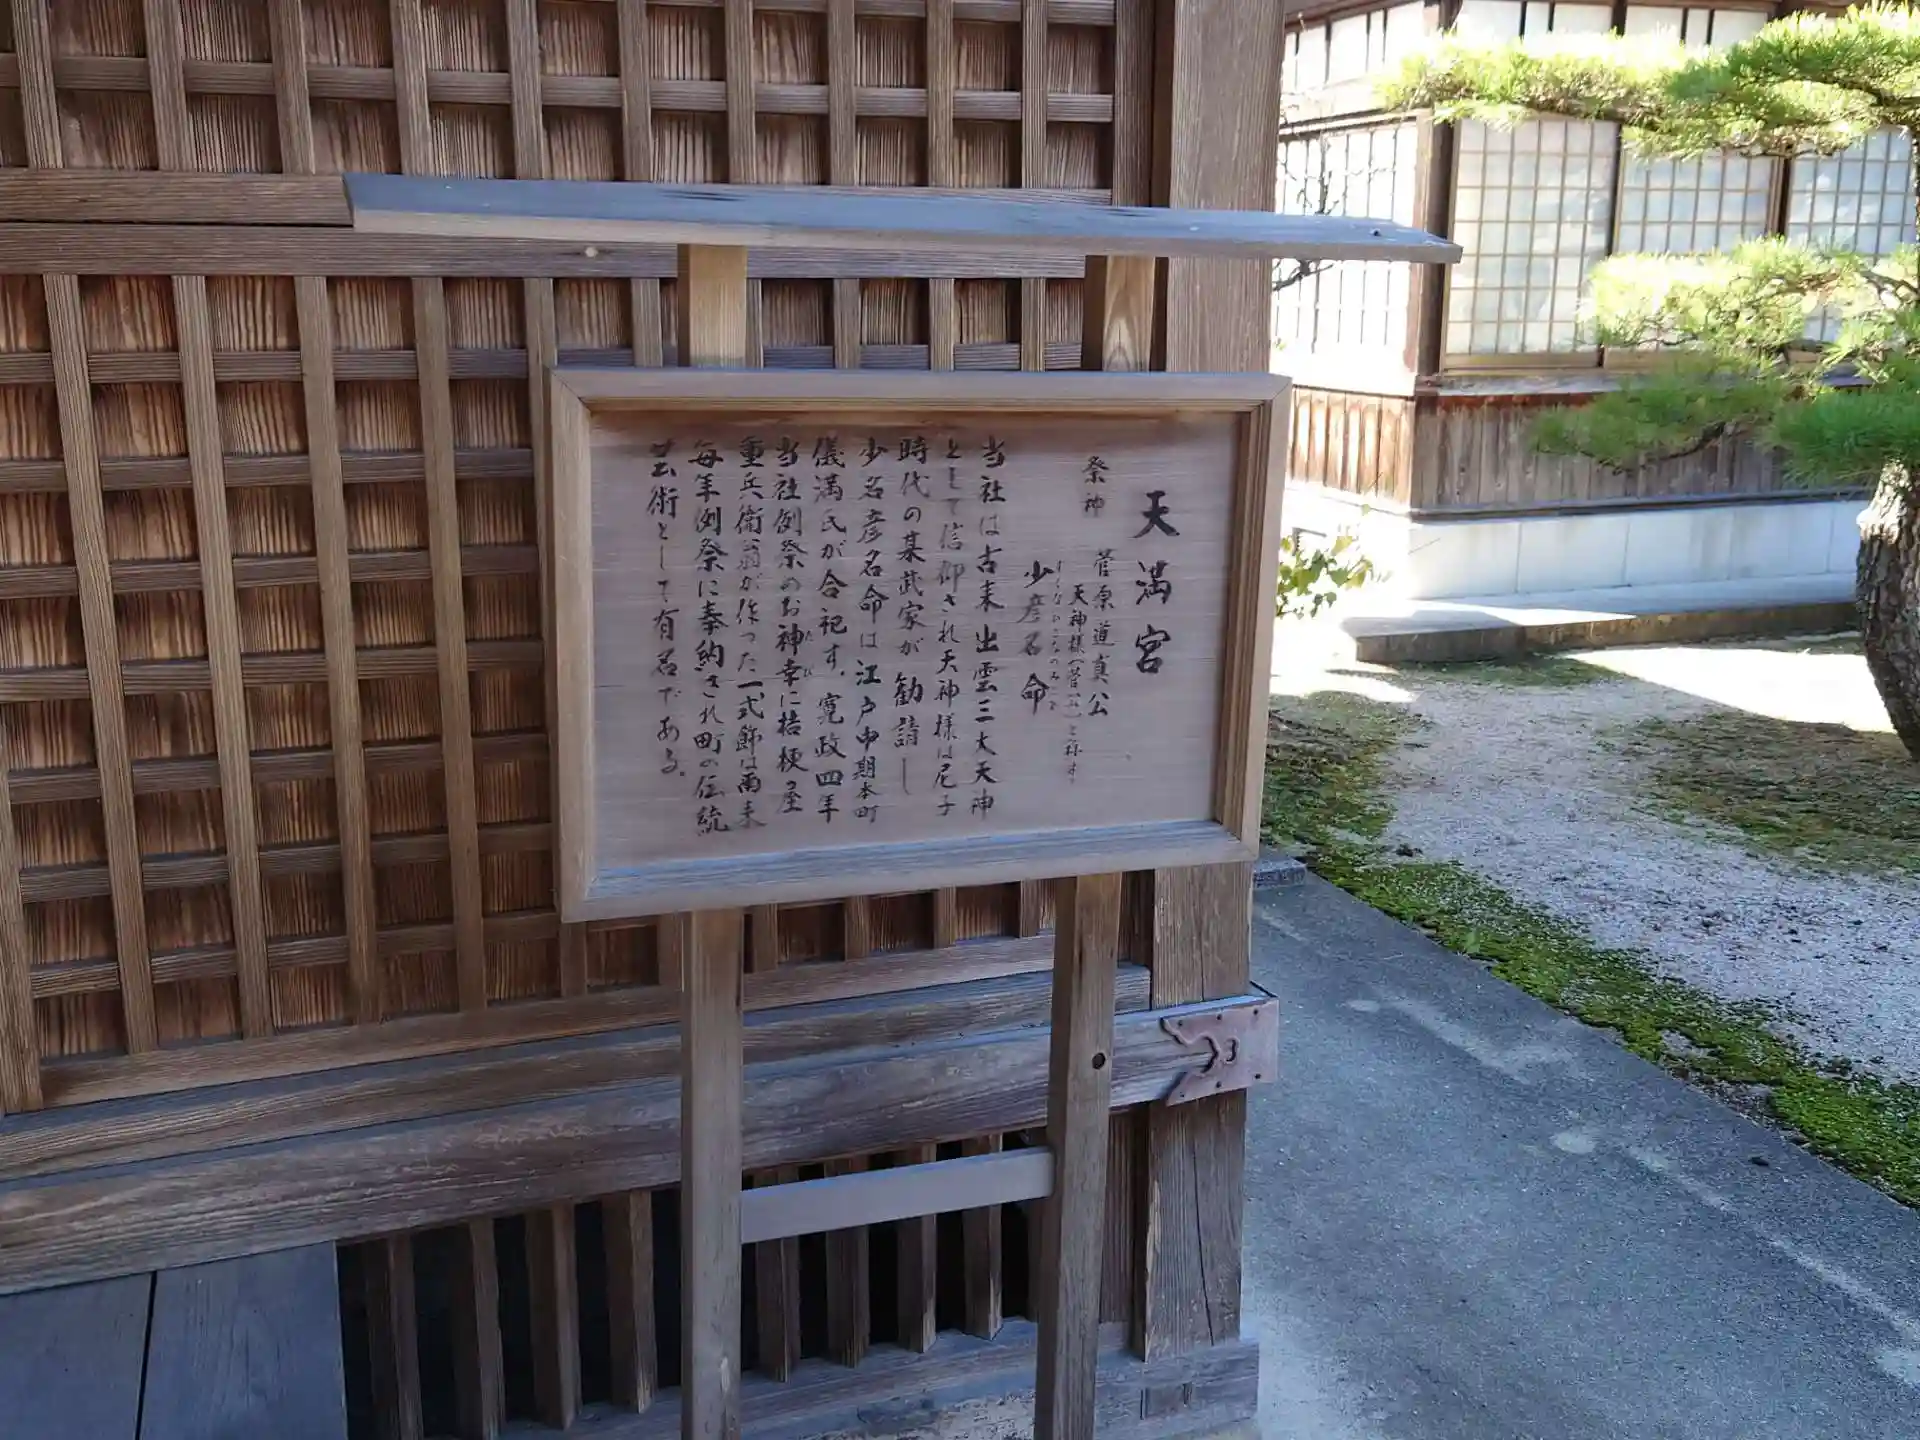 天満宮
祭神 菅原道真公
天神様(菅公)と称す。
すくなひこなのみこと
少彦名命
当社は古来出雲三大天神
として信仰され天神様は尼子
時代の某武家が勧請し
少名彦名命は江戸中期本町
儀満氏が合祀す。寛政四年
当社例祭のお神幸に桔梗屋
たび
重兵衛翁が作った一式飾は爾来
毎年例祭に奉納され町の伝統
芸術として有名である。